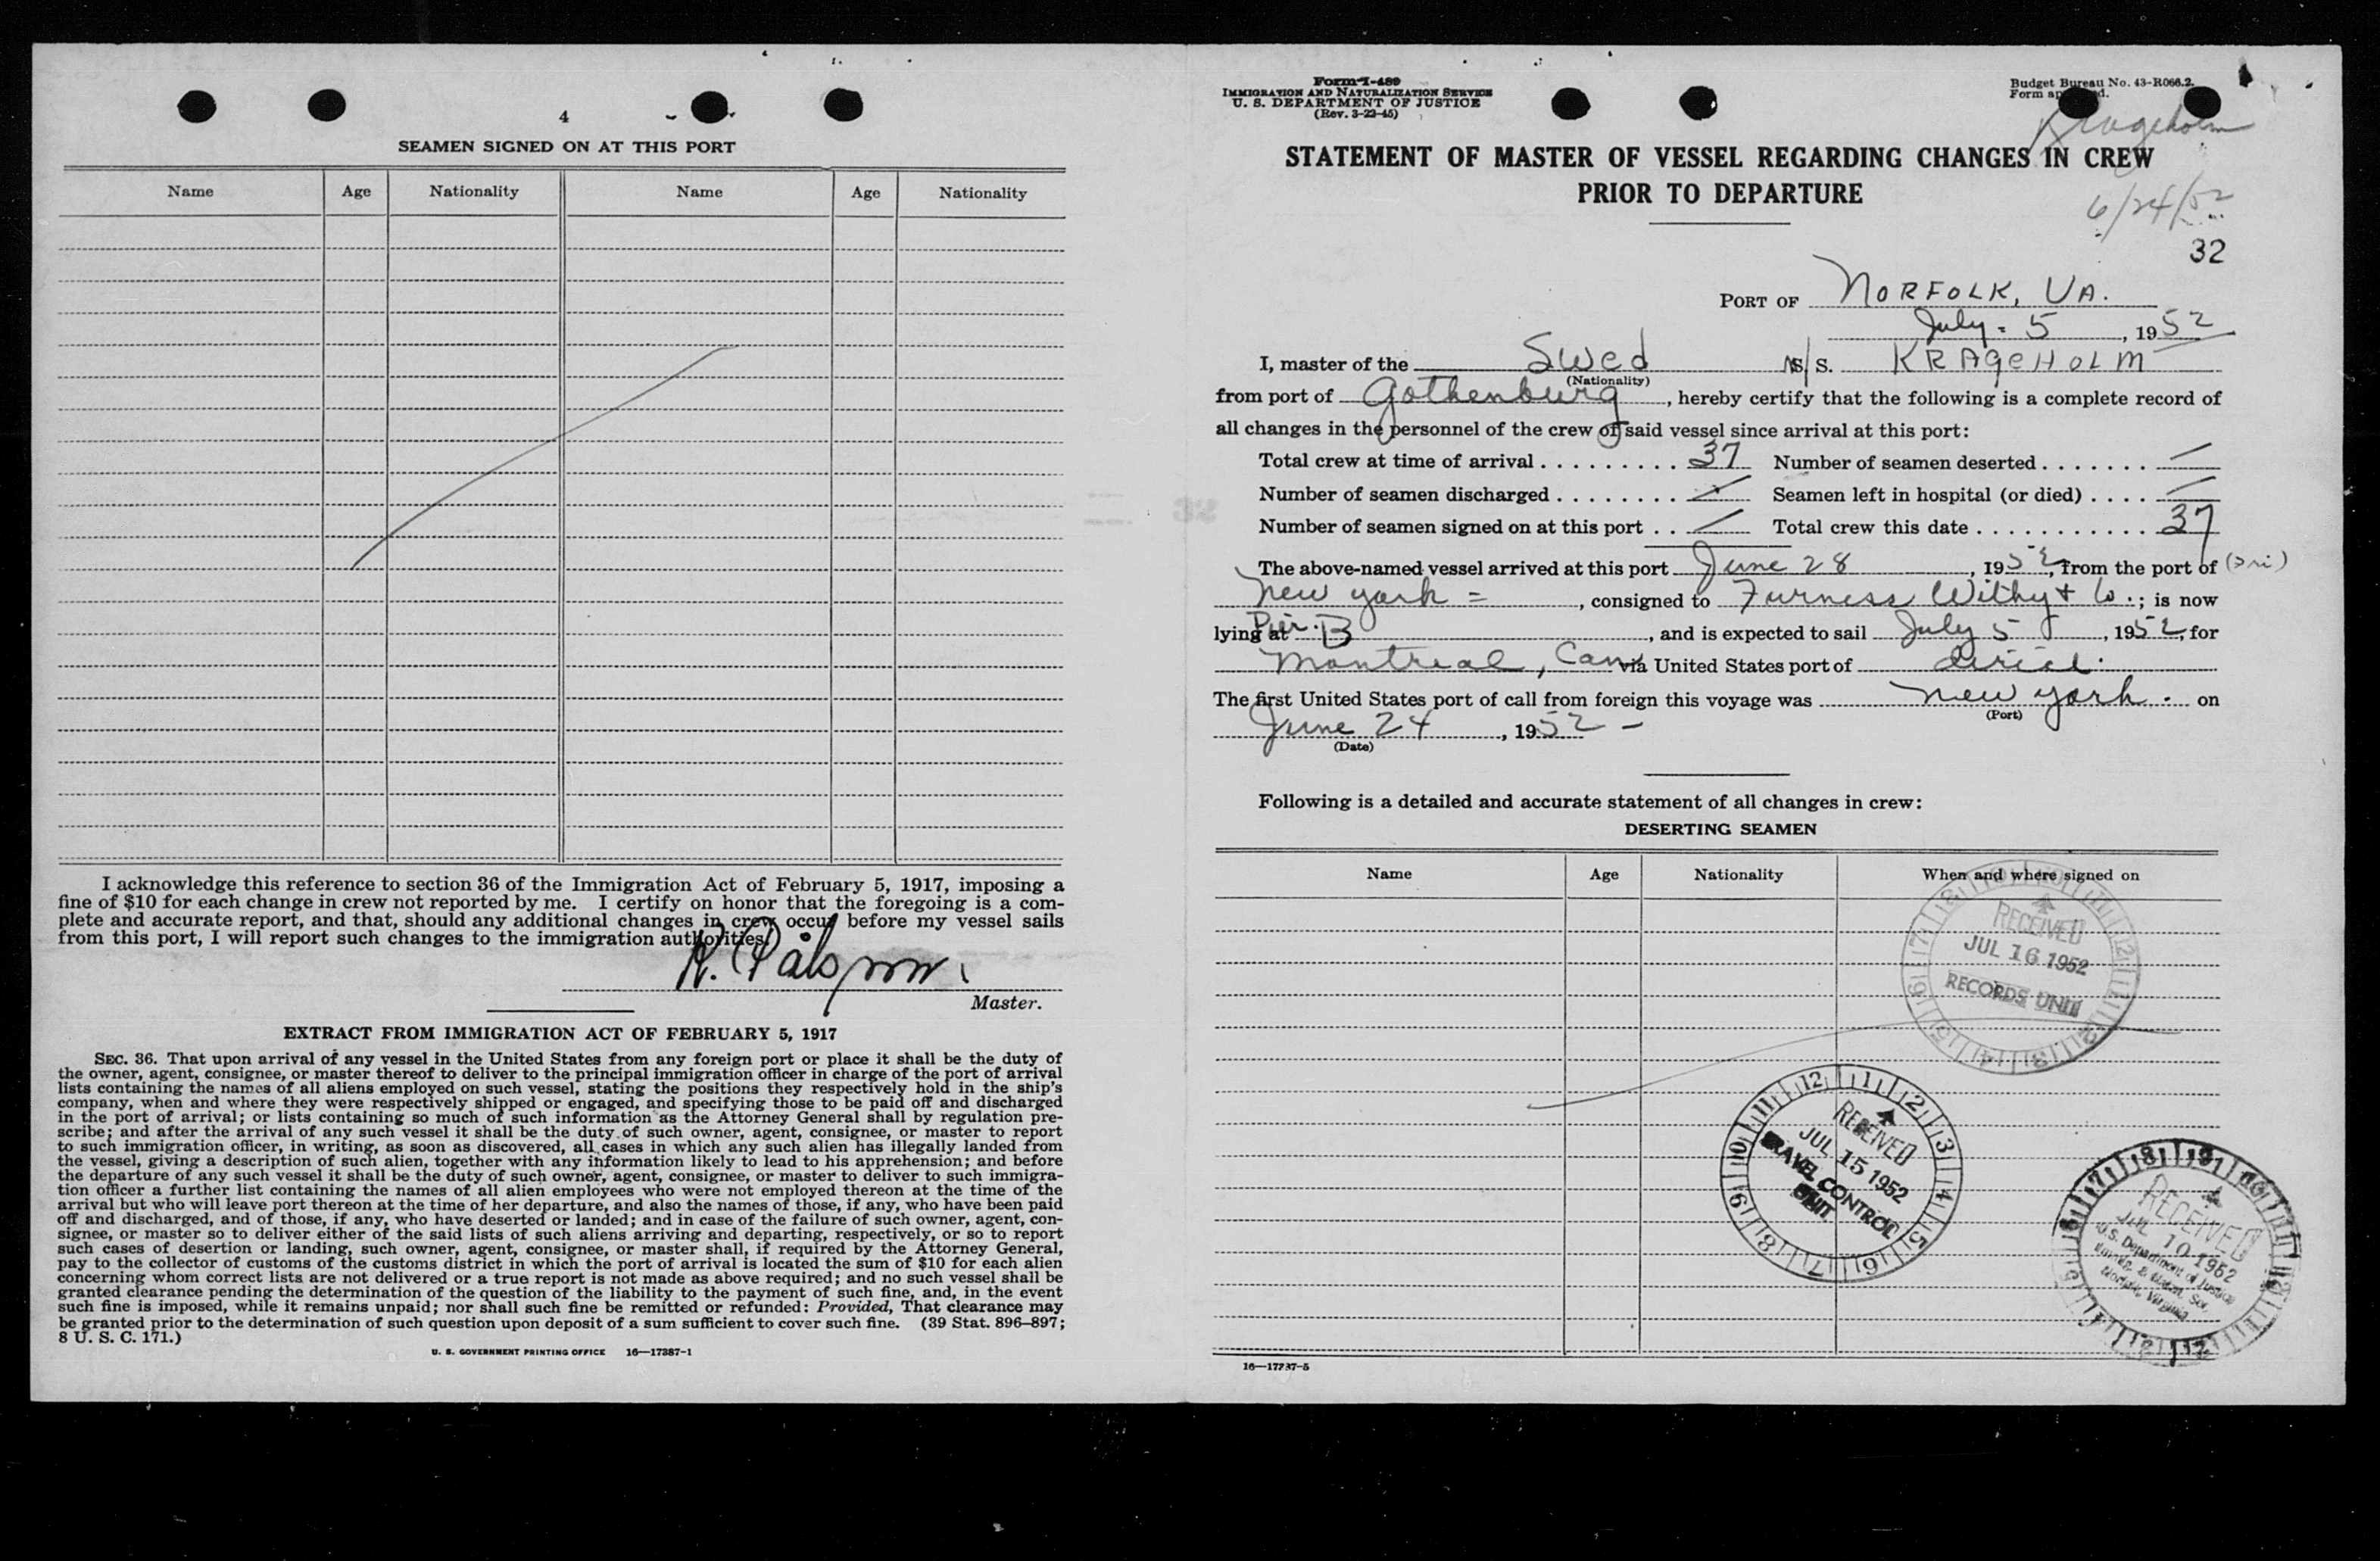 4
SEAMEN SIGNED ON AT THIS PORT
Name Age Nationality Name Age Nationality
I acknowledge this reference to section 36 of the Immigration Act of February 5, 1917, imposing a
fine of $10 for each change in crew not reported by me. I certify on honor that the foregoing is a com-
plete and accurate report, and that, should any additional changes in crew occur before my vessel sails
from this port, I will report such changes to the immigration authorities.
Master.
EXTRACT FROM IMMIGRATION ACT OF FEBRUARY 5, 1917
SEC. 36. That upon arrival of any vessel in the United States from any foreign port or place it shall be the duty of
the owner, agent, consignee, or master thereof to deliver to the principal immigration officer in charge of the port of arrival
lists containing the names of all aliens employed on such vessel, stating the positions they respectively hold in the ship's
company, when and where they were respectively shipped or engaged, and specifying those to be paid off and discharged
in the port of arrival; or lists containing so much of such information as the Attorney General shall by regulation pre-
scribe; and after the arrival of any such vessel it shall be the duty of such owner, agent, consignee, or master to report
to such immigration officer, in writing, as soon as discovered, all cases in which any such alien has illegally landed from
the vessel, giving a description of such alien, together with any information likely to lead to his apprehension; and before
the departure of any such vessel it shall be the duty of such owner, agent, consignee, or master to deliver to such immigra-
tion officer a further list containing the names of all alien employees who were not employed thereon at the time of the
arrival but who will leave port thereon at the time of her departure, and also the names of those, if any, who have been paid
off and discharged, and of those, if any, who have deserted or landed; and in case of the failure of such owner, agent, con-
signee, or master so to deliver either of the said lists of such aliens arriving and departing, respectively, or so to report
such cases of desertion or landing, such owner, agent, consignee, or master shall, if required by the Attorney General,
pay to the collector of customs of the customs district in which the port of arrival is located the sum of $10 for each alien
concerning whom correct lists are not delivered or a true report is not made as above required; and no such vessel shall be
granted clearance pending the determination of the question of the liability to the payment of such fine, and, in the event
such fine is imposed, while it remains unpaid; nor shall such fine be remitted or refunded: Provided, That clearance may
be granted prior to the determination of such question upon deposit of a sum sufficient to cover such fine. (39 Stat. 896–897;
8 U. S. C. 171.)
U. S. GOVERNMENT PRINTING OFFICE 16—17287-1
Form I-489
IMMIGRATION AND NATURALIZATION SERVICE
U. S. DEPARTMENT OF JUSTICE
(Rev. 3-22-45)
Budget Bureau No. 43-R066.2.
Form
Krageholm
STATEMENT OF MASTER OF VESSEL REGARDING CHANGES IN CREW
PRIOR TO DEPARTURE
6/24/52
32
PORT OF NORFOLK, VA.
July 5, 1952
I, master of the Swed M/S. KRAGEHOLM
(Nationality)
from port of Gothenburg, hereby certify that the following is a complete record of
all changes in the personnel of the crew of said vessel since arrival at this port:
Total crew at time of arrival . . . . . . . . . 37 Number of seamen deserted . . . . . . . —
Number of seamen discharged . . . . . . . . — Seamen left in hospital (or died) . . . . —
Number of seamen signed on at this port . . — Total crew this date . . . . . . . . . . . 37
The above-named vessel arrived at this port June 28, 1952, from the port of
New York =, consigned to Furness Withy & Co.; is now
lying at Pier. B, and is expected to sail July 5, 1952, for
Montreal, Can via United States port of direct.
The first United States port of call from foreign this voyage was New York. on
(Port)
June 24, 1952 –
(Date)
Following is a detailed and accurate statement of all changes in crew:
DESERTING SEAMEN
Name Age Nationality When and where signed on
RECEIVED
JUL 16 1952
RECORDS UNIT
RECEIVED
JUL 15 1952
TRAVEL CONTROL
UNIT
RECEIVED
JUL 10 1952
U.S. Department of Justice
Immig. & Natzn. Ser.
Norfolk, Virginia